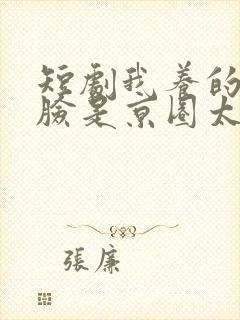 短劇我養的
臉是京圈太
張廉